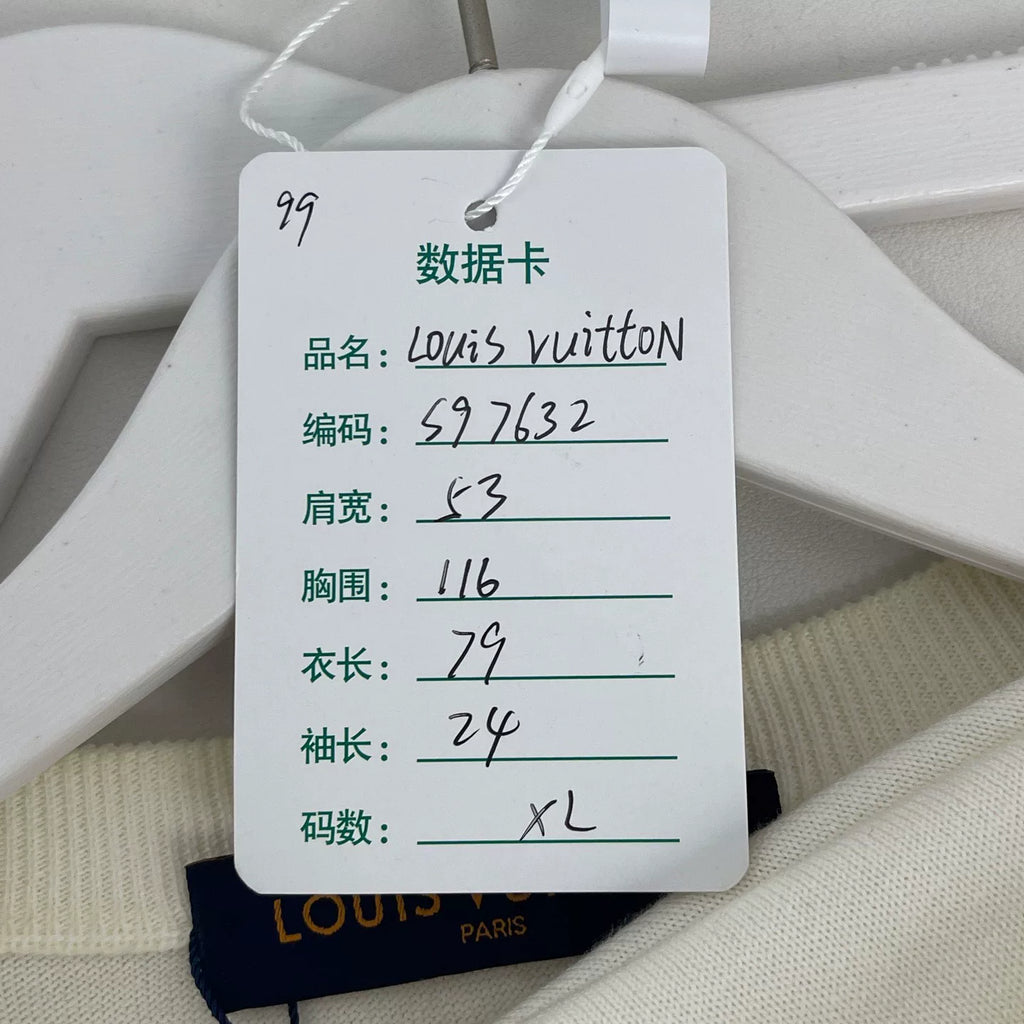 99
数据卡
品名: Louis Vuitton
编码: 597632
肩宽: 53
胸围: 116
衣长: 79
袖长: 24
码数: XL
LOUIS
PARIS